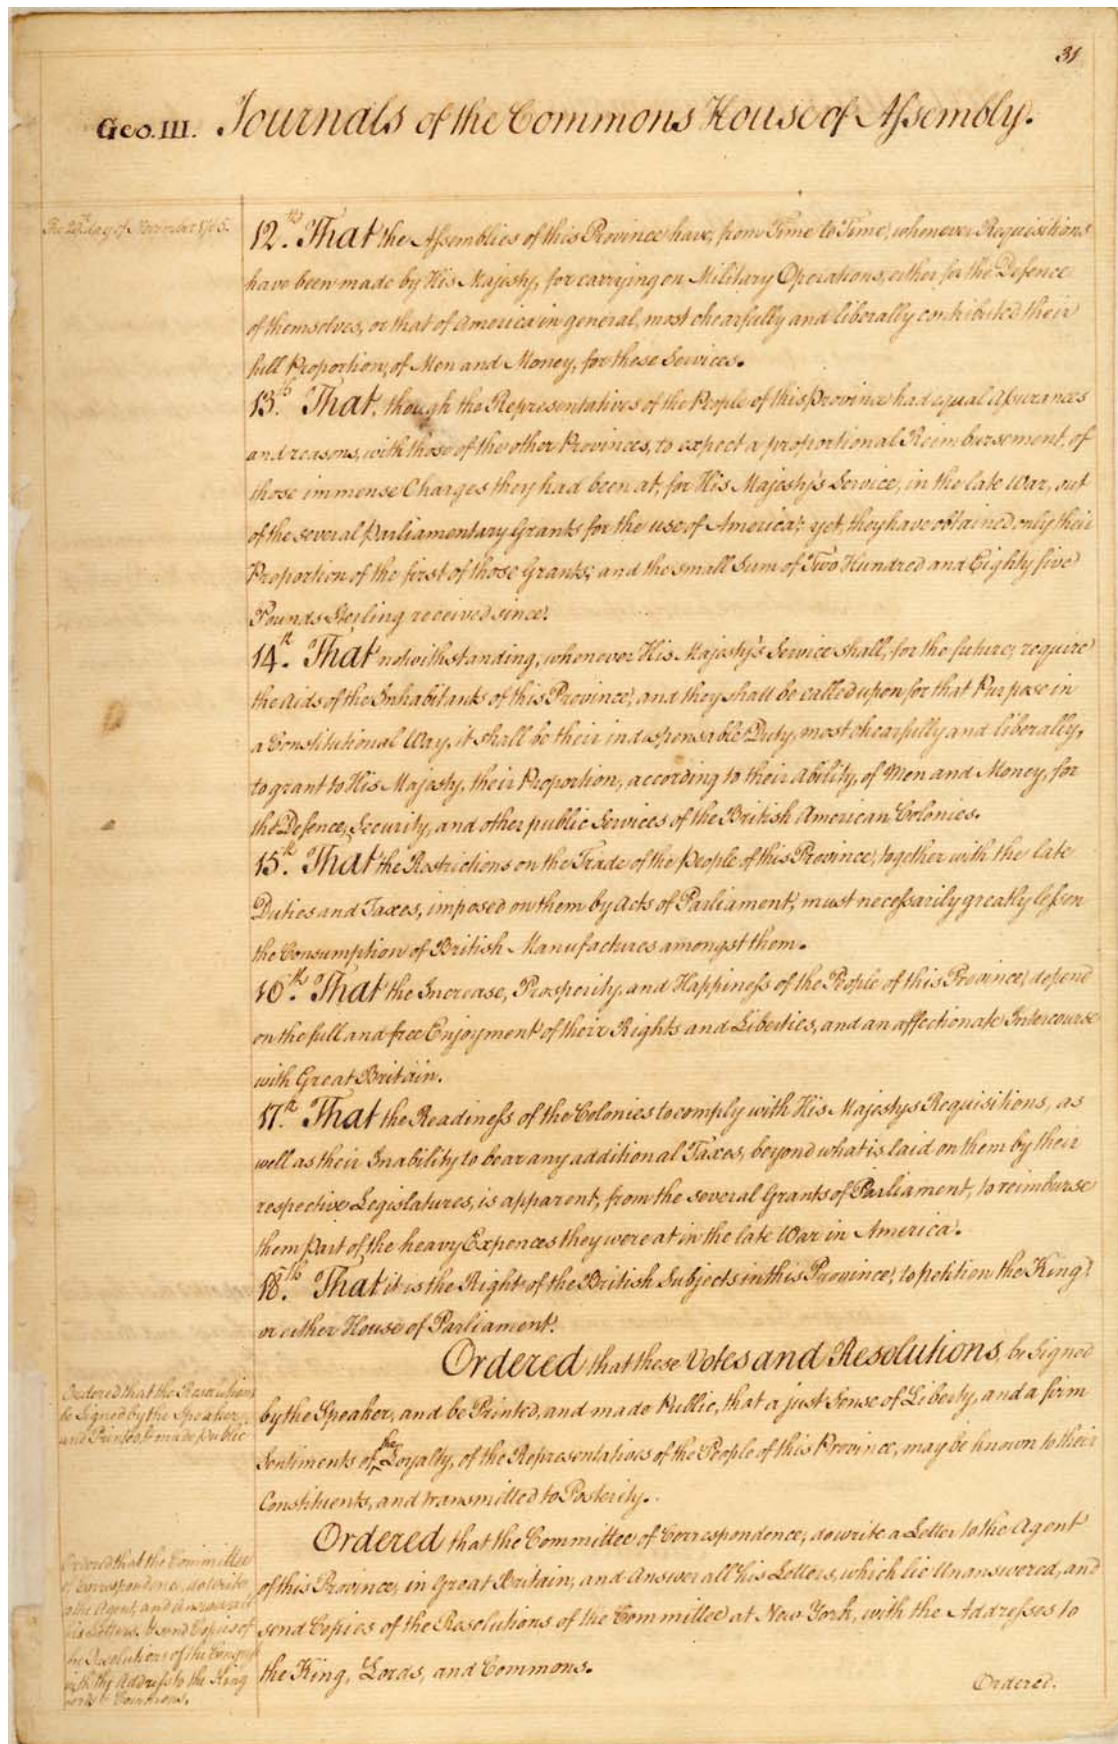 31
Geo. III. Journals of the Commons House of Assembly.
The 29th day of November 1765.
12.th That the Assemblies of this Province have, from Time to Time, whenever Requisitions
have been made by His Majesty, for carrying on Military Operations, either for the Defence
of themselves, or that of America in general, most chearfully and liberally contributed their
full Proportion, of Men and Money, for these Services.
13.th That, though the Representatives of the People of this Province had equal Assurances
and reasons, with those of the other Provinces, to expect a proportional Reimbursement, of
those immense Charges they had been at, for His Majesty's Service, in the late War, out
of the several Parliamentary Grants for the use of America; yet, they have obtained only their
Proportion of the first of those Grants; and the small Sum of Two Hundred and Eighty five
Pounds Sterling received since.
14.th That notwithstanding, whenever His Majesty's Service shall, for the future, require
the Aids of the Inhabitants of this Province, and they shall be called upon for that Purpose in
a Constitutional Way, it shall be their indispensable Duty, most chearfully and liberally,
to grant to His Majesty, their Proportion, according to their Ability, of Men and Money, for
the Defence, Security, and other public Services of the British American Colonies.
15.th That the Restrictions on the Trade of the People of this Province, together with the late
Duties and Taxes, imposed on them by Acts of Parliament, must necessarily greatly lessen
the Consumption of British Manufactures amongst them.
16.th That the Increase, Prosperity, and Happiness of the People of this Province, depend
on the full and free Enjoyment of their Rights and Liberties, and an affectionate Intercourse
with Great Britain.
17.th That the Readiness of the Colonies to comply with His Majestys Requisitions, as
well as their Inability to bear any additional Taxes, beyond what is laid on them by their
respective Legislatures, is apparent, from the several Grants of Parliament, to reimburse
them Part of the heavy Expences they were at in the late War in America.
18.th That it is the Right of the British Subjects in this Province, to petition the King,
or either House of Parliament.
Ordered that these Votes and Resolutions, be Signed
by the Speaker, and be Printed, and made Public, that a just Sense of Liberty, and a firm
Sentiments of the Loyalty, of the Representatives of the People of this Province, may be known to their
Constituents, and transmitted to Posterity.
Ordered that the Resolutions
be Signed by the Speaker,
and Printed, & made Public
Ordered that the Committee of Correspondence, do write a Letter to the Agent
of this Province, in Great Britain, and Answer all his Letters, which lie Unanswered, and
send Copies of the Resolutions of the Committee at New York, with the Addresses to
the King, Lords, and Commons.
Ordered that the Committee
of Correspondence, do write
to the Agent, and Answer all
his Letters, & send Copies of
the Resolutions of the Congress
with the Address to the King
Lords & Commons.
Ordered.